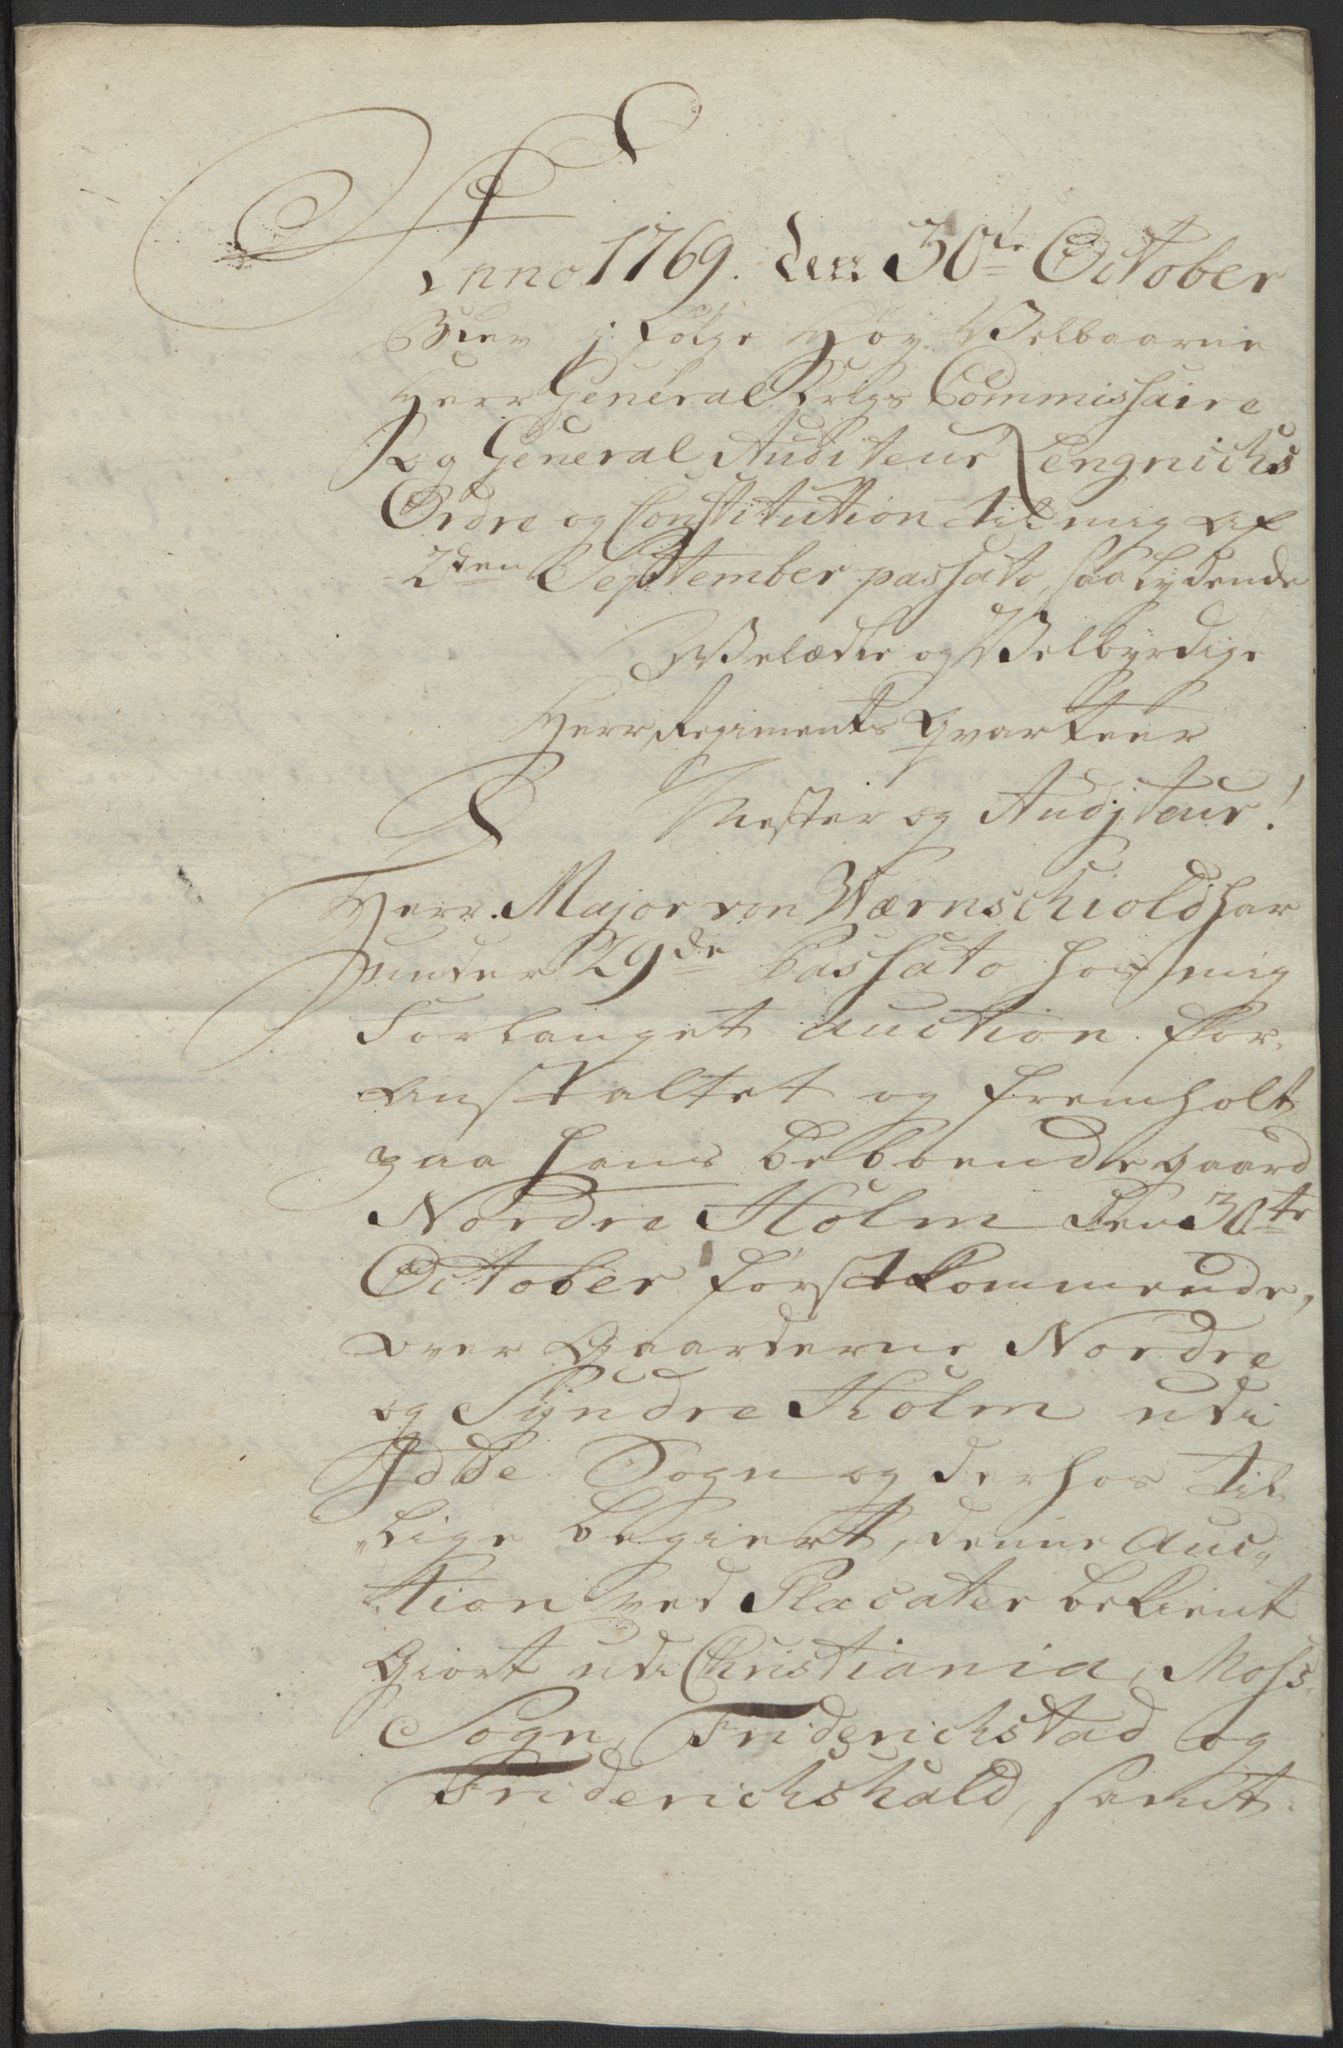 Anno 1769. den 30te October
Blev j følge Høy Velbaarne
Herr General Krigs Commissaire
og General Auditeur Lengnichs
Ordre og Constitution til mig af
2den September passato, saalydende
Velædle og Velbyrdige
Herr Regiments Qvarteer
Mester og Auditeur!
Herr Major von Wærnschiold har
under 29de Passato hos mig
Forlanget auction for-
anstaltet og fremholt
paa hans beboende gaard
Nordre Holm den 30te
October førstkommende,
over Gaarderne Nordre
og Syndre Holm udi
Idde Sogn og derhos til
lige begiert, denne Auc„
„tion ved Placater bekient
Giort udi Christiania, Moss,
Sogn, Friderichstad og
Friderichshald, samt